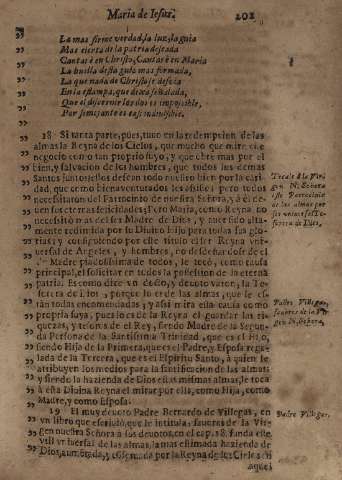 Maria de Iesus. 202
La mas firme verdad, la luz, la guia
Mas cierta de la patria deseada
Cantarè en Christo, Cantarè en Maria
La huella desta guia mas formada,
La que nada de Christo se desvia
En la estampa, que dexa señalada,
Que el diferenciarlos es impossible,
Por semejantes es casi indivisible.
18 Si tanta parte, pues, tuvo en la redempcion de las
almas la Reyna de los Cielos, que mucho que mire este
negocio como tan proprio suyo, y que obre mas por el
bien, y salvacion de los hombres, que todos los demas
Santos juntos
dad, que como bienaventurados les assiste; pero todos
necessitaron del Patrocinio de nuestra Señora, y à
Maria, como Reyna, no
necessitò mas del ser Madre de Dios, y
redimida por su Divino Hijo para todas sus glo-
rias; y constituyendo por este titulo el ser Reyna vni-
versal de Angeles, y hombres, no desdeñar de ser el
Madre piadosissima de todos, le tocò, como causa
principal, el solicitar en todos la possession de la eterna
patria. Es como dize vn docto, y devoto varon, la Te-
sorera de Dios; porque lo es de las almas, que le es-
tàn todas encomendadas, y assi mira esta causa como
propria suya, pues lo es de la Reyna el guardar las ri-
quezas, y tesoros de el Rey, siendo Madre de la Segun-
da Persona de la Santissima Trinidad, que es el Hijo,
siendo Hija de la Primera, que es el Padre, y Esposa rega-
lada de la Tercera, que es el Espiritu Santo, à quien le
atribuyen los medios para la santificacion de las almas
y siendo la hazienda de Dios estas mismas almas, le toca
à esta Divina Reyna el mirar por ella, como Hija, como
Madre, y como Esposa.
19 El muy devoto Padre Bernardo de Villegas, en
vn libro que escriviò, que le intitula: favores de la Vir-
gen nuestra Señora à sus devotos, en el cap. 18. funda este
las almas estimada hazienda de
Dios, aumentada, y estimada por la Reyna de los Cielos
aquel
Tocale à la Vir-
gen N. Señora
este Patrocinio
de las almas por
ser vnica Te-
sorera de Dios.
Padre Villegas,
favores de la Vir-
gen N. Señora.
Padre Villegas.